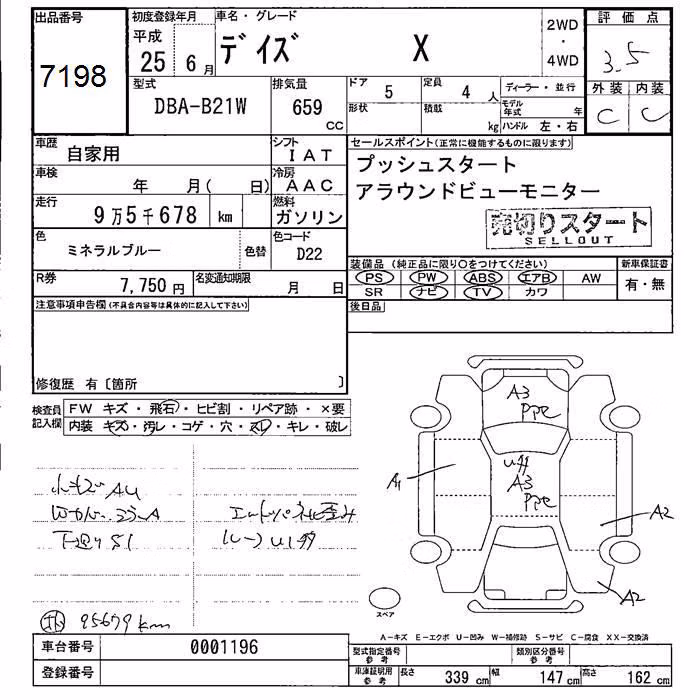 出品番号
7198
初度登録年月
平成
25 6月
車名・グレード
デイズ X
2WD
・
4WD
評価点
3.5
外装 内装
C C
型式
DBA-B21W
排気量
659
CC
ドア 5
定員 4 人
ディーラー・並行
形状
積載 kg
モデル年式 年
ハンドル 左・右
車歴
自家用
シフト
IAT
車検
年 月( 日)
冷房
AAC
走行
9万5千678 km
燃料
ガソリン
色
ミネラルブルー
色替
色コード
D22
R券
7,750円
名変通知期限
月 日
セールスポイント(正常に機能するものに限ります)
プッシュスタート
アラウンドビューモニター
売切りスタート
SELLOUT
装備品(純正品に限り○をつけてください)
新車保証書
PS PW ABS エアB AW
SR ナビ TV カワ
有・無
後日品
注意事項申告欄(不具合内容等は具体的に記入して下さい)
修復歴 有〔箇所 〕
検査員
記入欄
FW キズ・飛石・ヒビ割・リペア跡・×要
内装 キズ・汚レ・コゲ・穴・スレ・キレ・破レ
小キズ AU
下廻り S1
ルーフ U1
95679km
A3
PPe
A1
A3
PPe
A2
A2
スペア
A−キズ E−エクボ U−凹み W−補修跡 S−サビ C−腐食 XX−交換済
車台番号
0001196
登録番号
型式指定番号
参考
類別区分番号
参考
車庫証明用
参考
長さ 339cm 幅 147cm 高さ 162cm